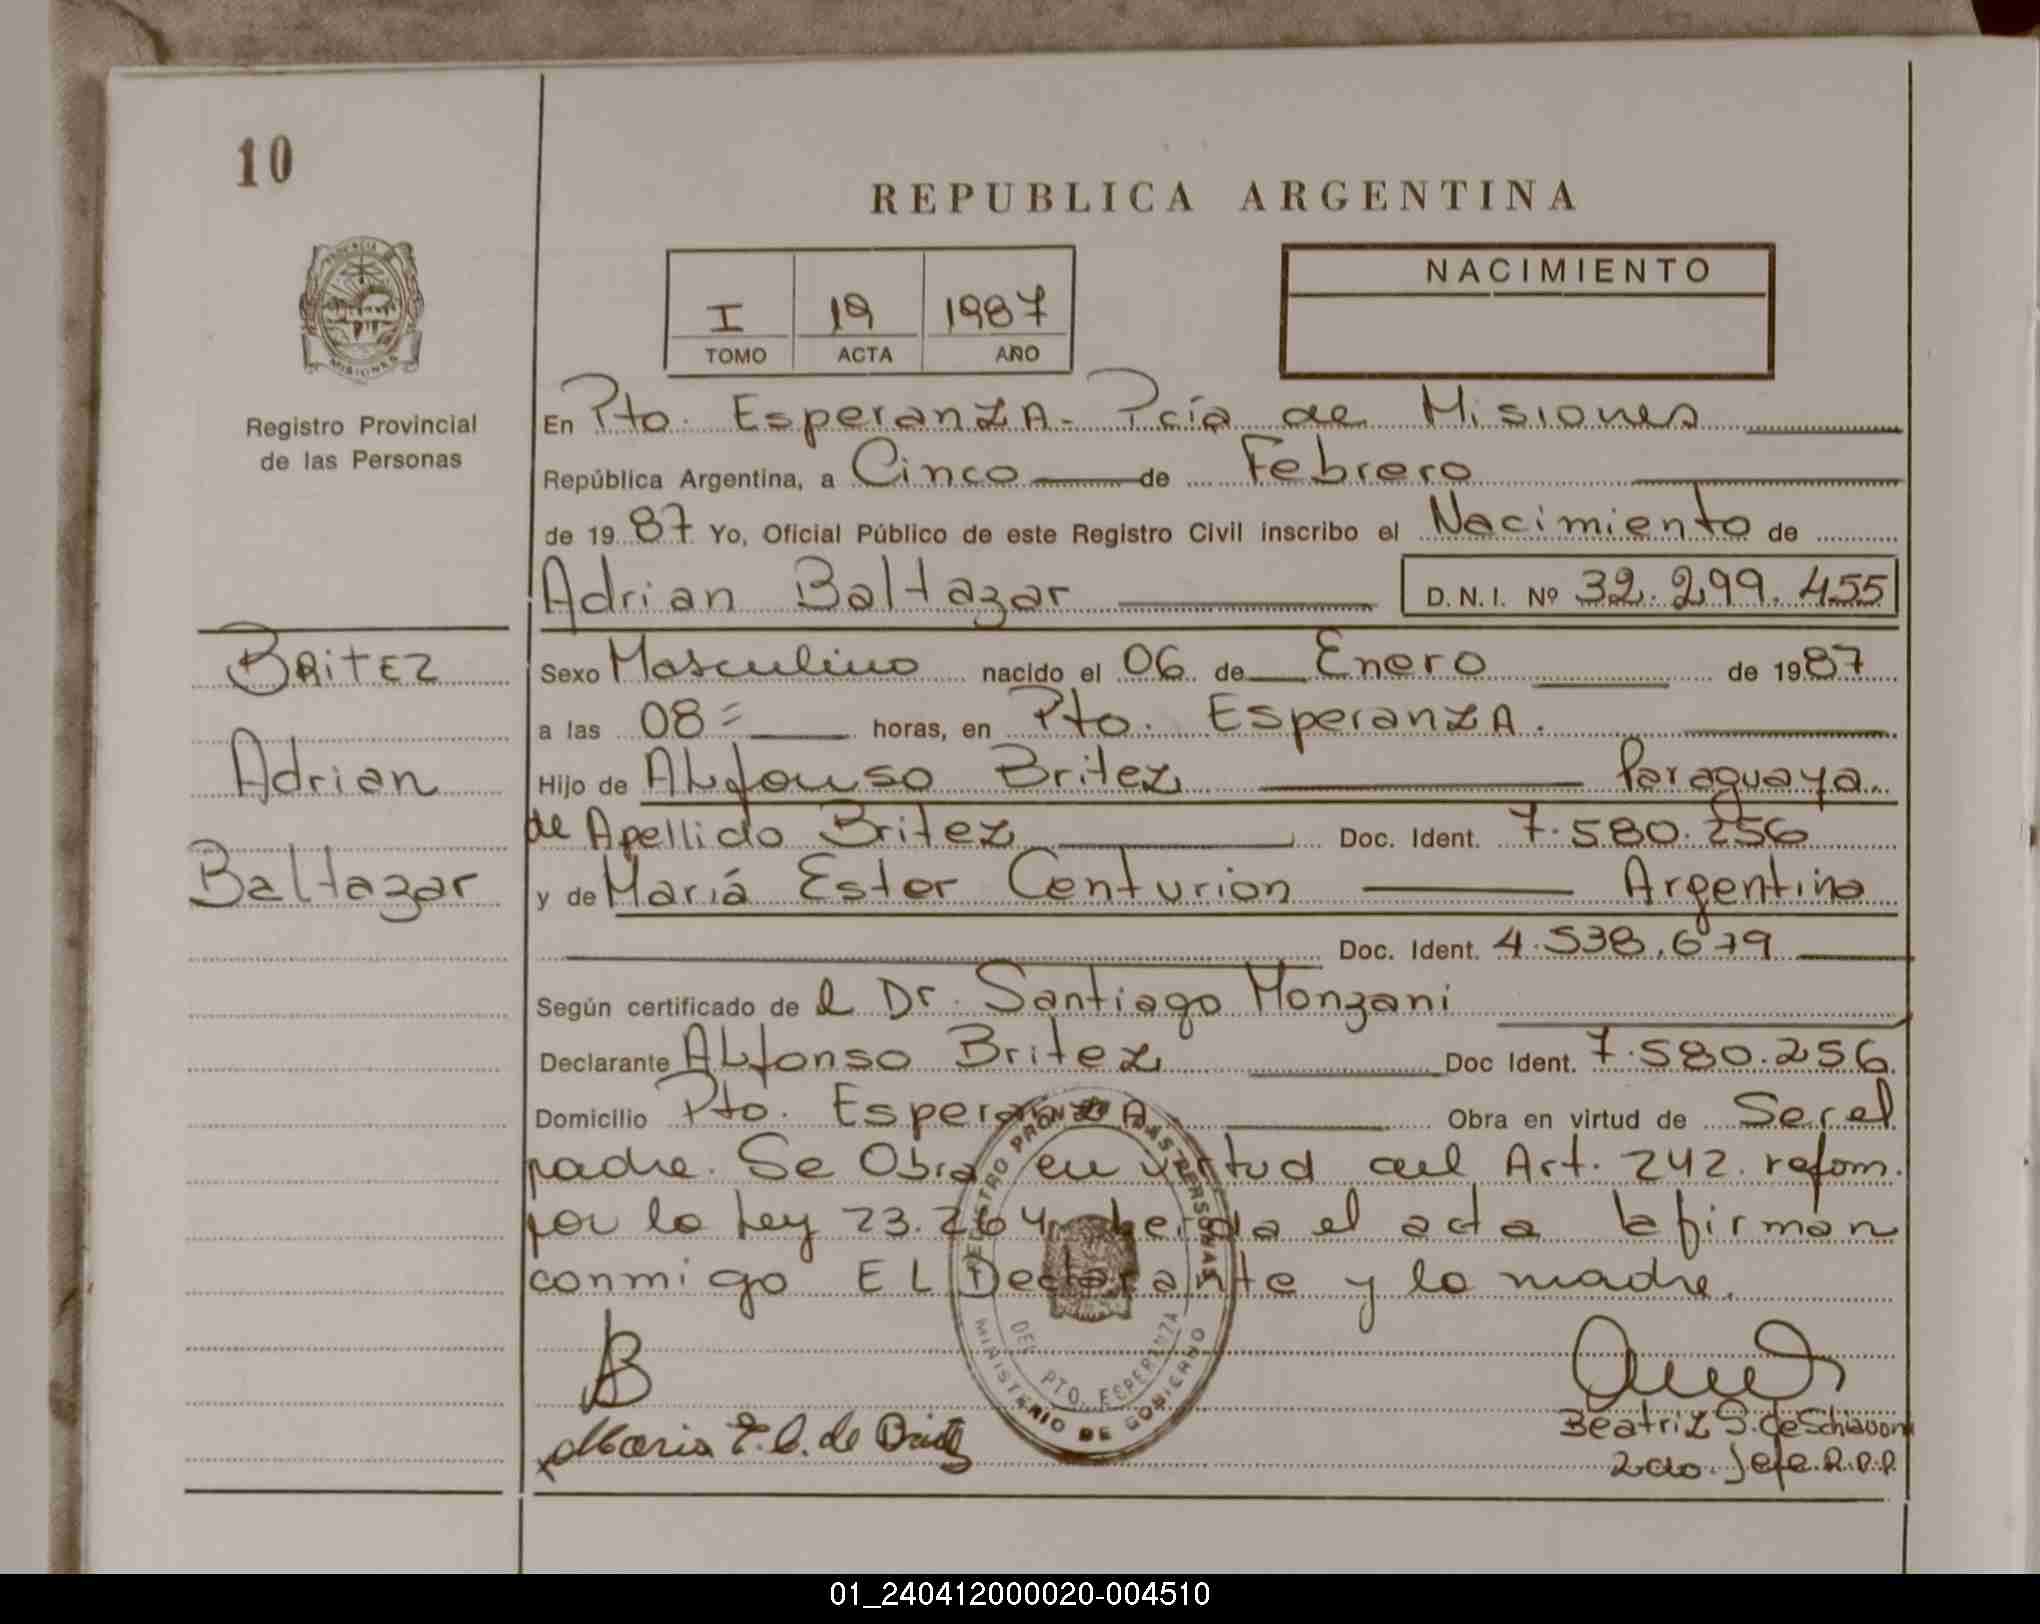 10
REPUBLICA ARGENTINA
PROVINCIA
MISIONES
Registro Provincial
de las Personas
I 19 1987
TOMO ACTA AÑO
NACIMIENTO
En Pto. EsperanzA - Pcía de Misiones
República Argentina, a Cinco de Febrero
de 19 87 Yo, Oficial Público de este Registro Civil inscribo el Nacimiento de
Adrian Baltazar D.N.I. Nº 32.299.455
BRITEZ
Adrian
Baltazar
Sexo Masculino nacido el 06 de Enero de 19 87
a las 08= horas, en Pto. EsperanzA.
Hijo de ALfonso Britez Paraguaya
de Apellido Britez Doc. Ident. 7.580.256
y de Mariá Ester Centurion Argentina
Doc. Ident. 4.538.679
Según certificado de l Dr. Santiago Monzani
Declarante ALfonso Britez Doc Ident. 7.580.256
Domicilio Pto. EsperanzA Obra en virtud de Ser el
padre. Se Obra en virtud del Art. 242. refom.
por la Ley 23.264, leida el acta la firman
conmigo EL Declarante y la madre.
REGISTRO PROV. DE LAS PERSONAS
DEL PTO. ESPERANZA
MINISTERIO DE GOBIERNO
AB
x Maria E. C. de Britez
Beatriz S. de Schiavoni
2do. Jefe R.P.P.
01_240412000020-004510